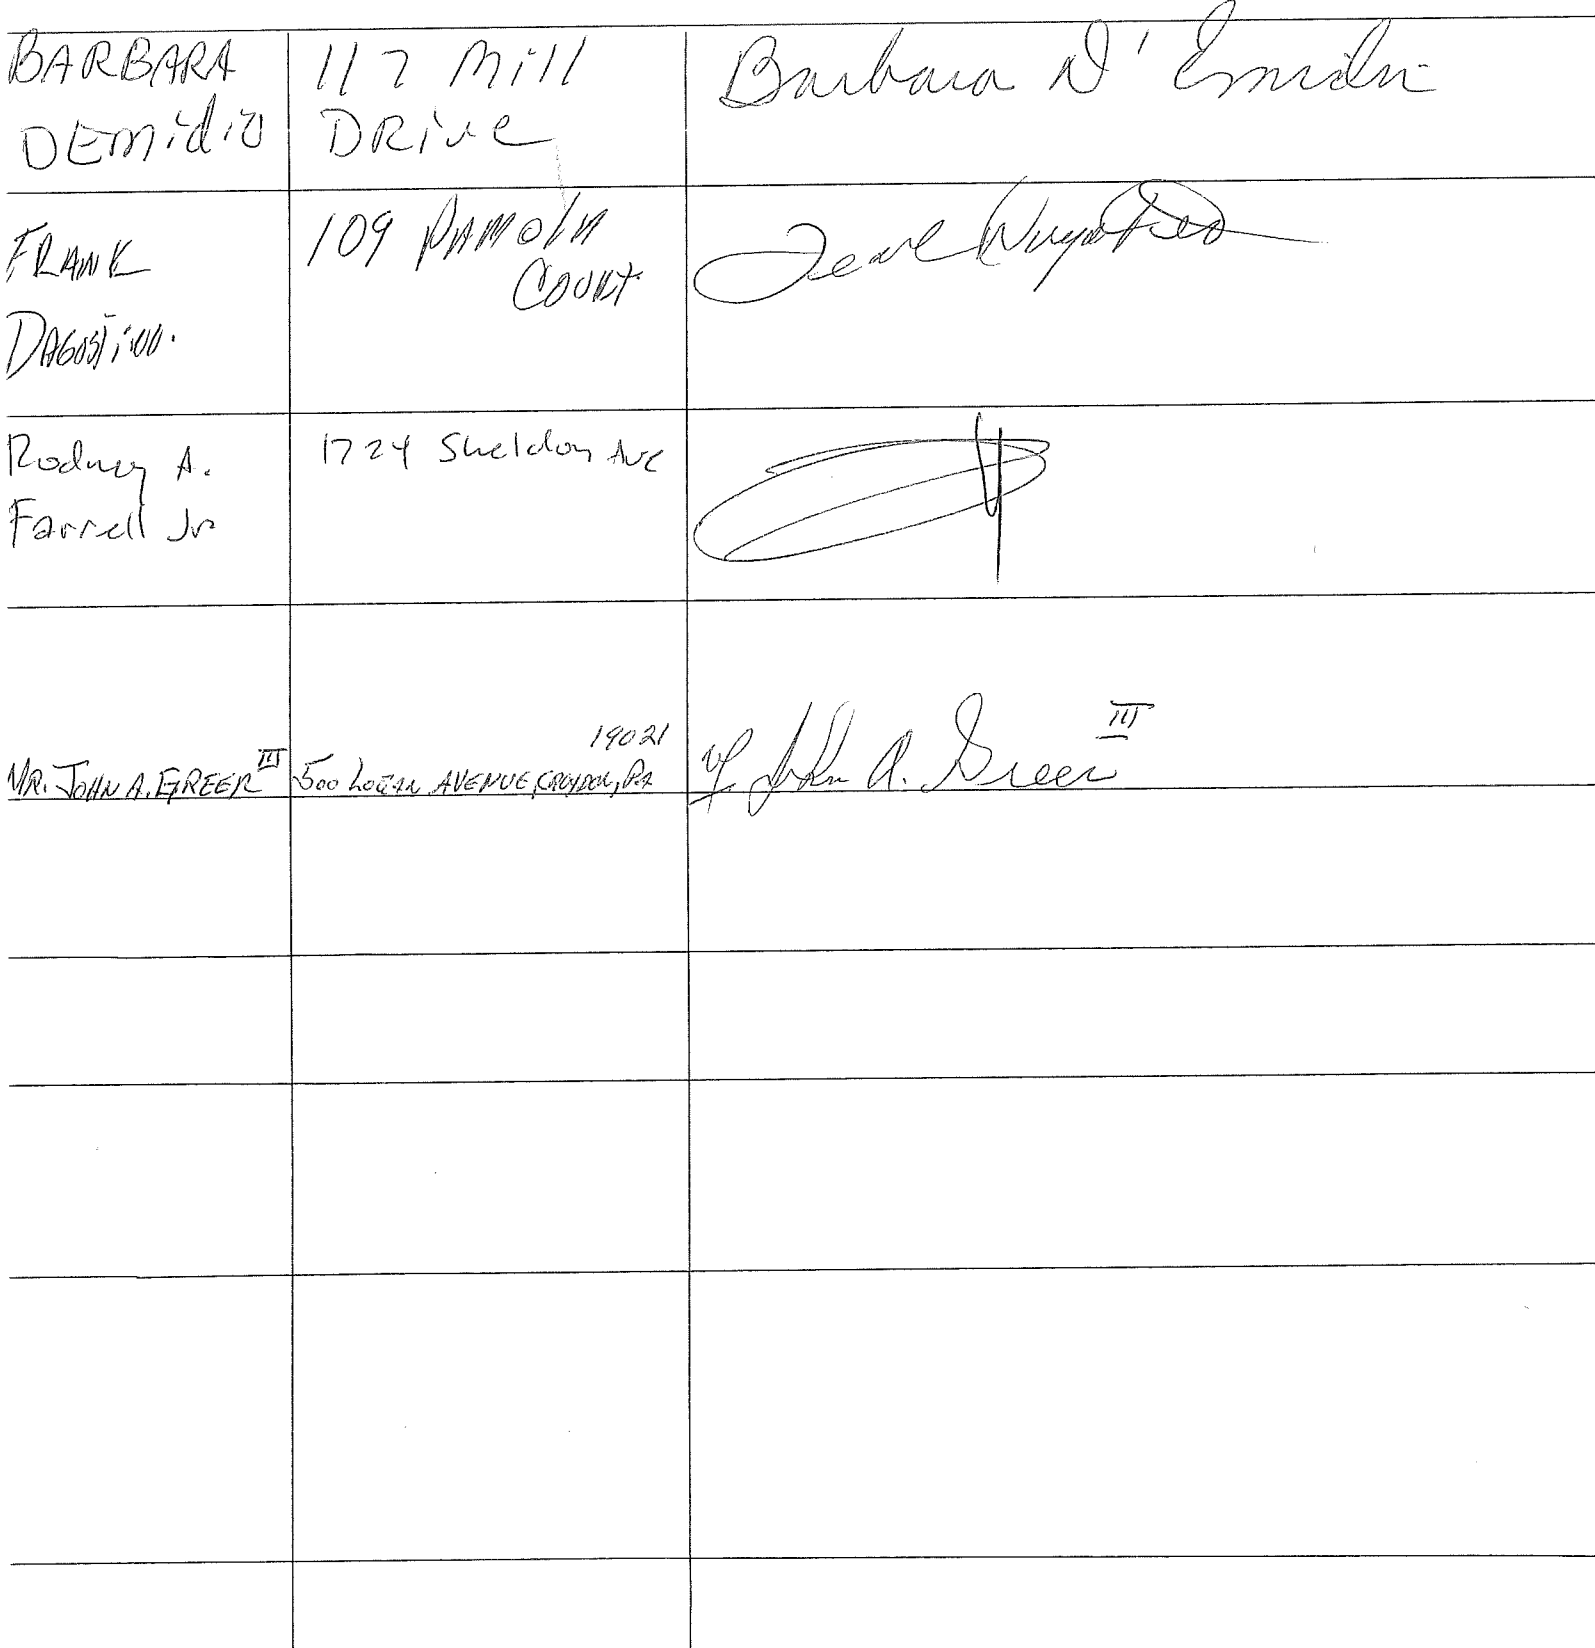 BARBARA
DEmidio
117 Mill
DRive
Barbara D' Emidio
FRANK
DAGOSTINO.
109 PAMOLA
COURT
Rodney A.
Farrell Jr
1724 Sheldon Ave
MR. JOHN A. GREER III
19021
500 LOGAN AVENUE, CROYDON, PA
John A. Greer III